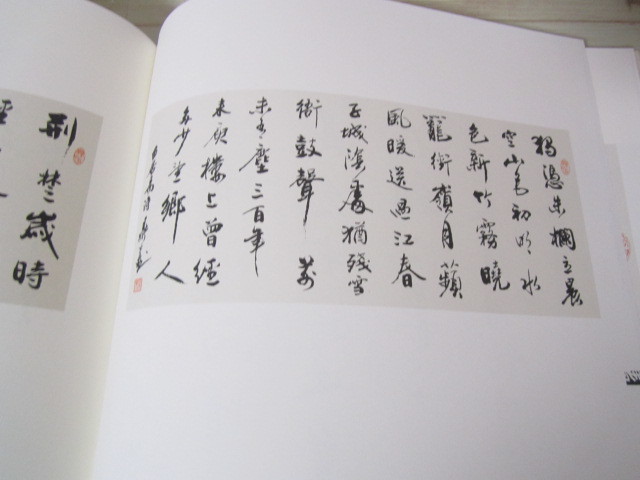 獨憑朱欄立晨
空山色初明水
色新竹霧曉
籠銜嶺月蘋
風暖送過江春
子城陰處猶殘雪
衙鼓聲前
未有塵三百年
来庾樓上曾經
多少望鄉人
荆楚歲時